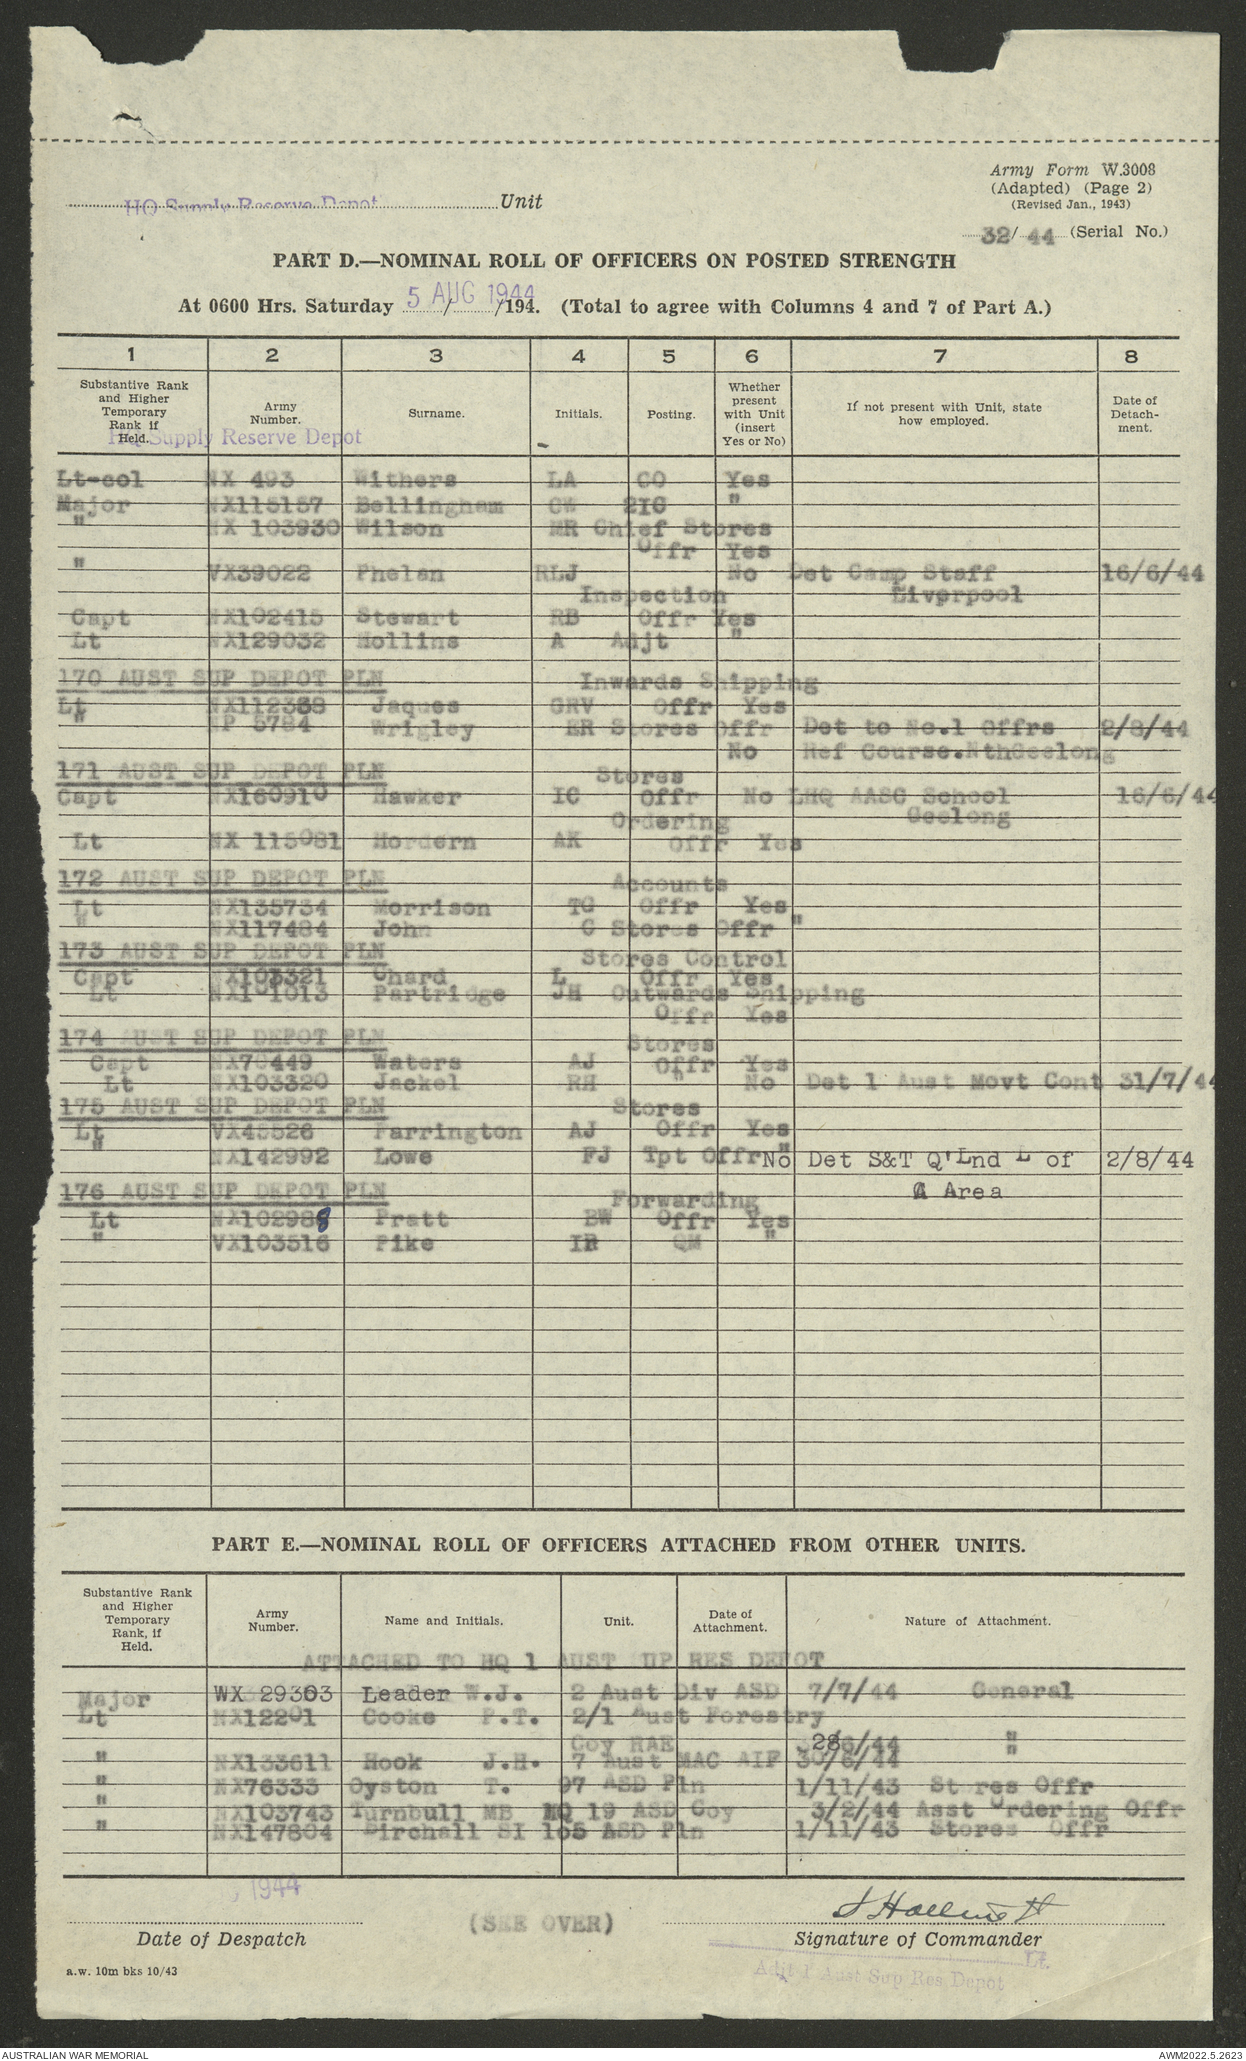 Army Form W.3008
(Adapted) (Page 2)
(Revised Jan., 1943)
HQ Supply Reserve Depot Unit
32/ 44 (Serial No.)
PART D.—NOMINAL ROLL OF OFFICERS ON POSTED STRENGTH
At 0600 Hrs. Saturday 5 AUG 1944 / /194. (Total to agree with Columns 4 and 7 of Part A.)
1 2 3 4 5 6 7 8
Substantive Rank and Higher Temporary Rank if Held. Army Number. Surname. Initials. Posting. Whether present with Unit (insert Yes or No) If not present with Unit, state how employed. Date of Detach-ment.
HQ Supply Reserve Depot
Lt-col NX 493 Withers LA CO Yes
Major NX115157 Bellingham CW 2IC "
" NX 103930 Wilson MR Chief Stores
Offr Yes
" VX39022 Phelan RLJ No Det Camp Staff 16/6/44
Inspection Liverpool
Capt NX102415 Stewart RB Offr Yes
Lt NX129032 Hollins A Adjt "
170 AUST SUP DEPOT PLN Inwards Shipping
Lt NX112368 Jaques GRV Offr Yes
" NP 5784 Wrigley ER Stores Offr Det to No.1 Offrs 2/8/44
No Ref Course.NthGeelong
171 AUST SUP DEPOT PLN Stores
Capt NX160910 Hawker IC Offr No LHQ AASC School 16/6/44
Ordering Geelong
Lt NX 115081 Hordern AK Offr Yes
172 AUST SUP DEPOT PLN Accounts
Lt NX135734 Morrison TG Offr Yes
" NX117484 John C Stores Offr "
173 AUST SUP DEPOT PLN Stores Control
Capt NX103321 Chard L Offr Yes
Lt NX101013 Partridge JH Outwards Shipping
Offr Yes
174 AUST SUP DEPOT PLN Stores
Capt NX70449 Waters AJ Offr Yes
Lt NX103320 Jackel RH " No Det 1 Aust Movt Cont 31/7/44
175 AUST SUP DEPOT PLN Stores
Lt VX45526 Farrington AJ Offr Yes
" NX142992 Lowe FJ Tpt Offr " No Det S&T Q'Lnd L of 2/8/44
C Area
176 AUST SUP DEPOT PLN Forwarding
Lt NX102988 Pratt BW Offr Yes
" VX103516 Pike IR QM "
PART E.—NOMINAL ROLL OF OFFICERS ATTACHED FROM OTHER UNITS.
Substantive Rank and Higher Temporary Rank, if Held. Army Number. Name and Initials. Unit. Date of Attachment. Nature of Attachment.
ATTACHED TO HQ 1 AUST SUP RES DEPOT
Major WX 29303 Leader W.J. 2 Aust Div ASD 7/7/44 General
Lt NX12201 Cooke P.T. 2/1 Aust Forestry
Coy RAE 28/6/44 "
" NX133611 Hook J.H. 7 Aust MAC AIF 30/6/44 "
" NX76333 Oyston T. 97 ASD Pln 1/11/43 Stores Offr
" NX103743 Turnbull MB HQ 19 ASD Coy 3/2/44 Asst Ordering Offr
" NX147804 Birchall SI 165 ASD Pln 1/11/43 Stores Offr
1944
(SEE OVER)
Date of Despatch Signature of Commander
Lt.
Adjt 1 Aust Sup Res Depot
a.w. 10m bks 10/43
AUSTRALIAN WAR MEMORIAL AWM2022.5.2623